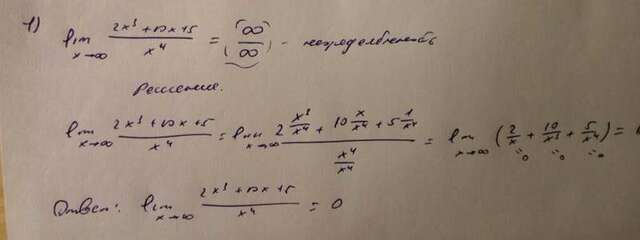 1)
lim x→∞ (2x³ + 10x + 5)/x⁴ = (∞/∞) - неопределённость
Решение.
lim x→∞ (2x³ + 10x + 5)/x⁴ = lim x→∞ (2 x³/x⁴ + 10 x/x⁴ + 5 1/x⁴)/(x⁴/x⁴) = lim x→∞ (2/x + 10/x³ + 5/x⁴) =
=0 =0 =0
Ответ: lim x→∞ (2x³ + 10x + 5)/x⁴ = 0